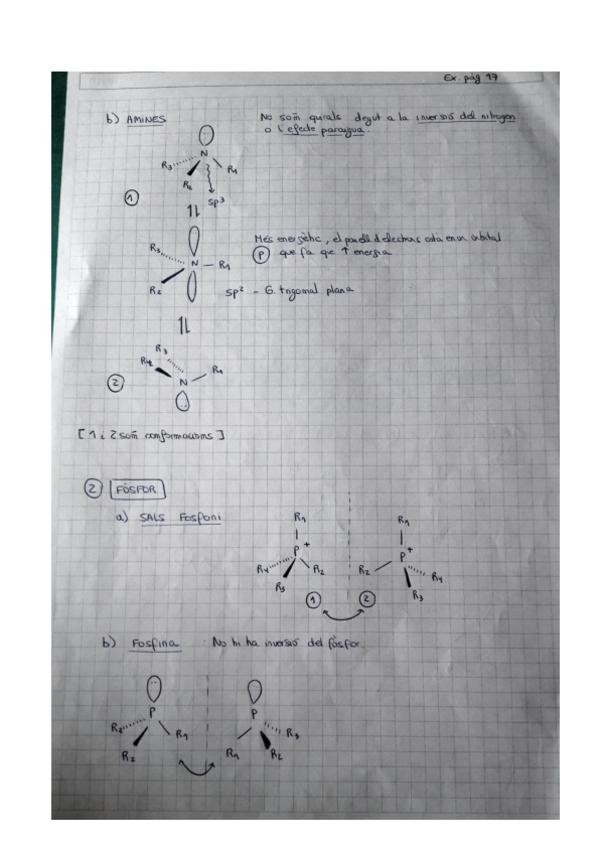 Ex. pàg 17
b) AMINES
No som quirals degut a la inversió del nitrogen
o l'efecte paraigua.
N
R3 R1
R2
1 sp3
Més energètic, el parell d'electrons està en un orbital
R3
N R1
P que fa que ↑ energia
R2
sp2 - G. trigonal plana
R3
R2
R1
2 N
[1 i 2 són conformacions]
2 FÒSFOR
a) SALS FOSFONI
R1 R1
P+ P+
R4 R2 R2 R4
R3 R3
1 2
b) FOSFINA No hi ha inversió del fòsfor.
P P
R3 R1 R3
R2 R1 R2